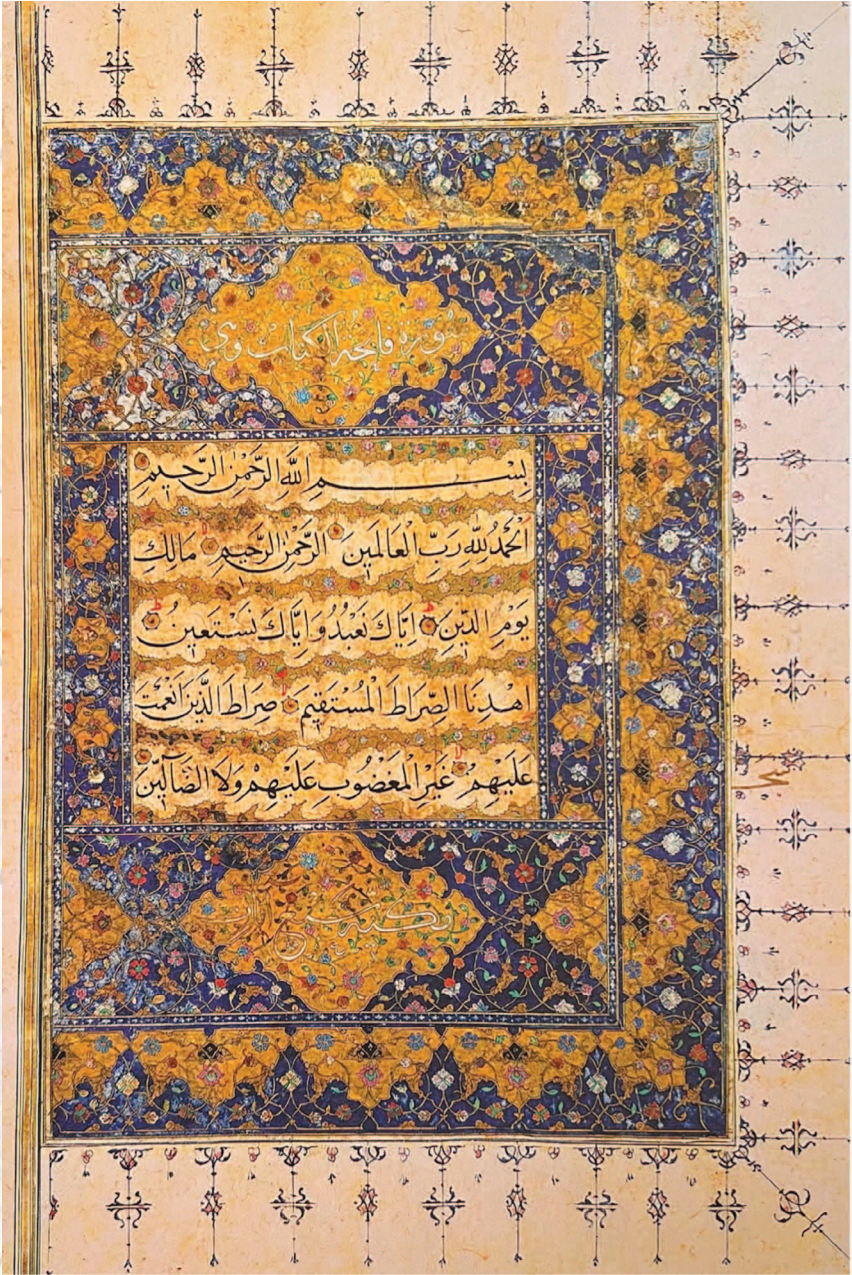 سورة فاتحة الكتاب وهى
بِسْمِ اللَّهِ الرَّحْمٰنِ الرَّحِيمِ
اَلْحَمْدُ لِلّٰهِ رَبِّ الْعَالَمِينَ الرَّحْمٰنِ الرَّحِيمِ مَالِكِ
يَوْمِ الدِّينِ اِيَّاكَ نَعْبُدُ وَاِيَّاكَ نَسْتَعِينُ
اِهْدِنَا الصِّرَاطَ الْمُسْتَقِيمَ صِرَاطَ الَّذِينَ اَنْعَمْتَ
عَلَيْهِمْ غَيْرِ الْمَغْضُوبِ عَلَيْهِمْ وَلَا الضَّآلِّينَ
مكية سبع آيات